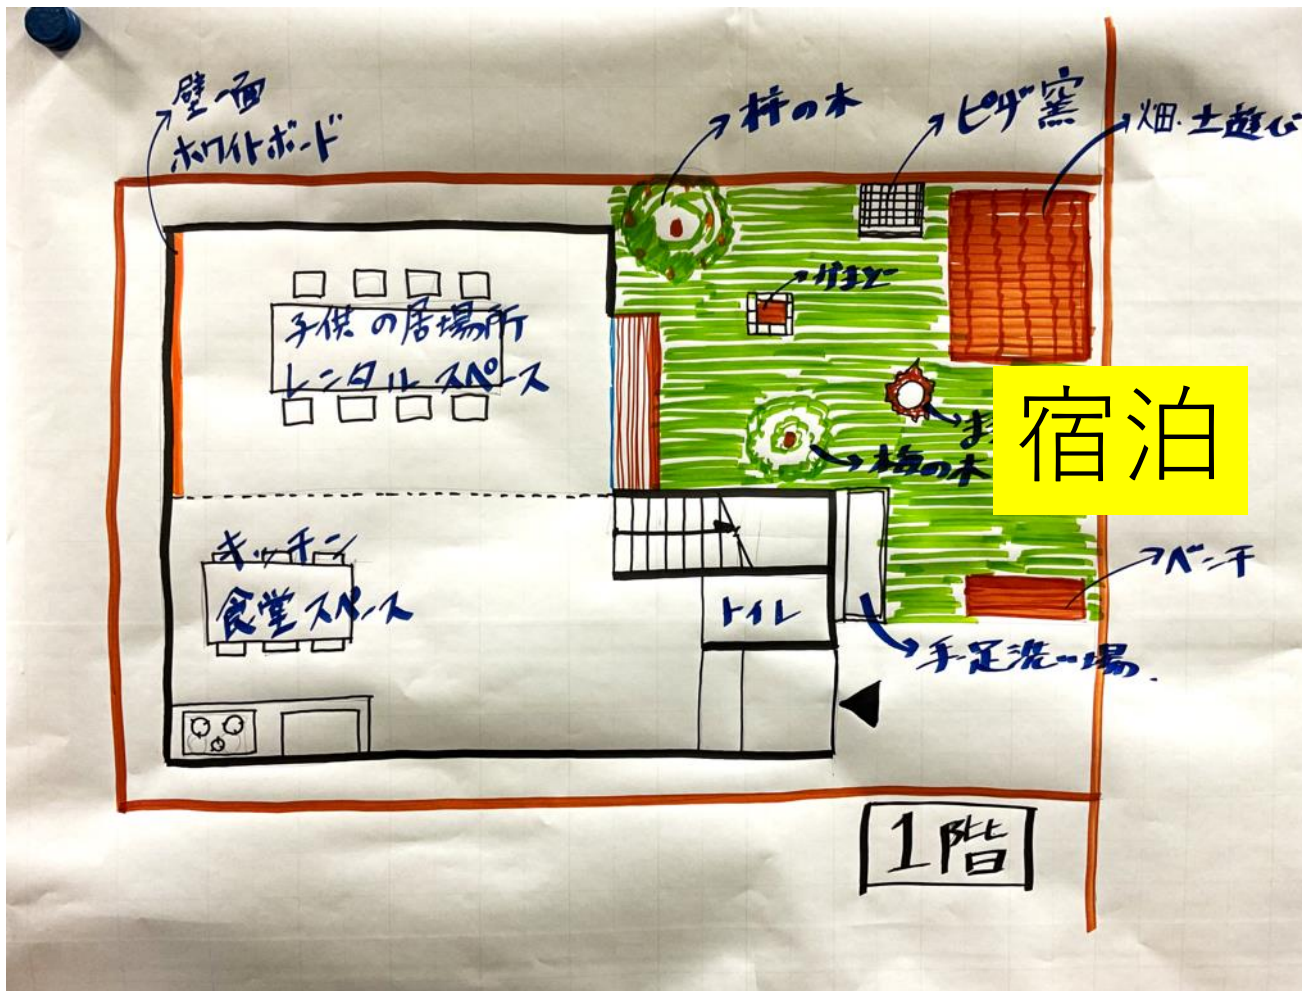 壁一面
ホワイトボード
柿の木
ピザ窯
畑・土遊び
かまど
子供の居場所
レンタルスペース
宿泊
梅の木
キッチン
食堂スペース
トイレ
ベンチ
手・足洗い場.
1階